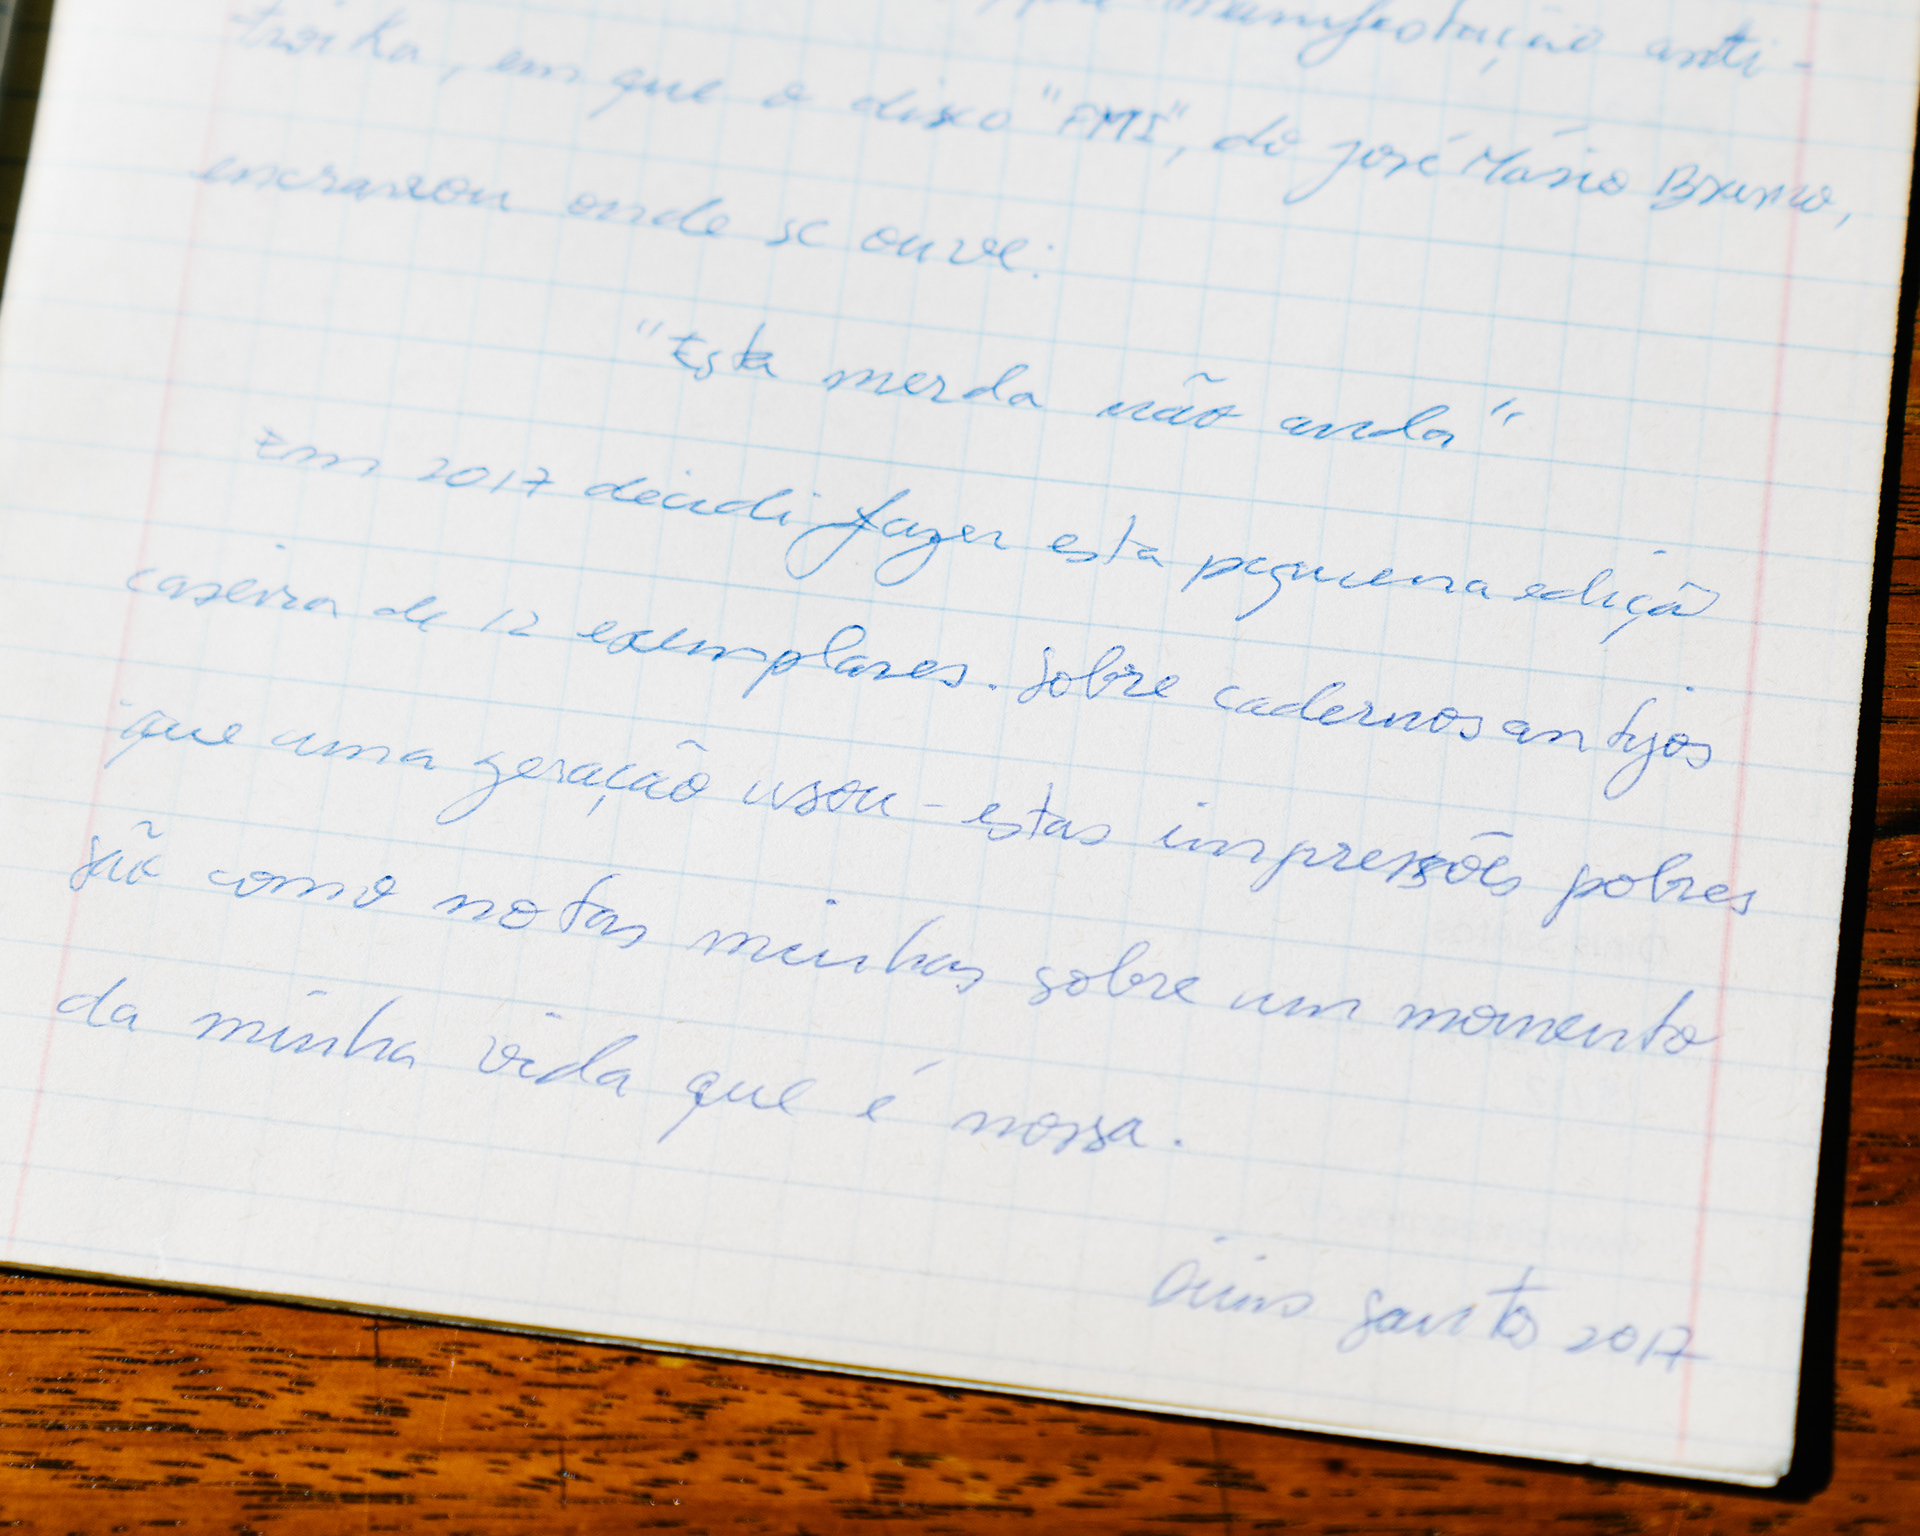 manifestação anti-
troika, em que o disco "FMI", do José Mário Branco,
encravou onde se ouve:
"Esta merda não anda"
Em 2017 decidi fazer esta pequena edição
caseira de 12 exemplares. Sobre cadernos antigos
que uma geração usou - estas impressões pobres
são como notas minhas sobre um momento
da minha vida que é nossa.
Dinis Santos 2017